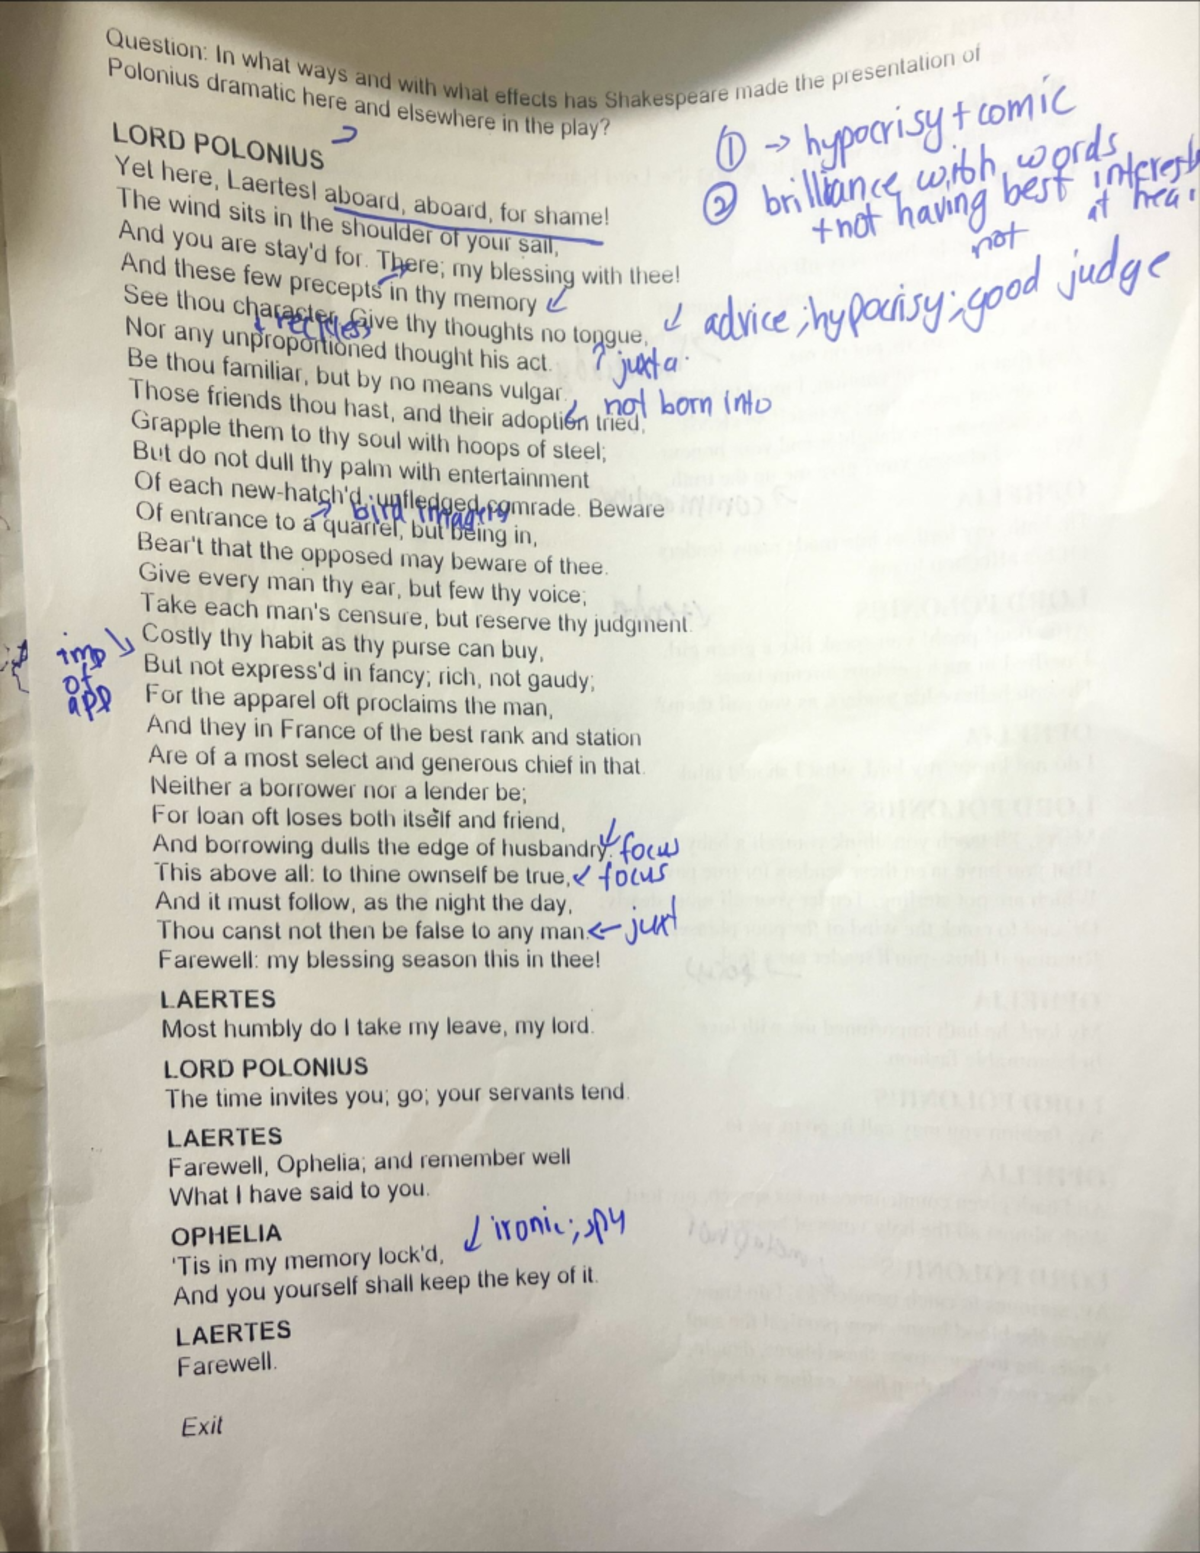 Question: In what ways and with what effects has Shakespeare made the presentation of
Polonius dramatic here and elsewhere in the play?
① → hypocrisy + comic
② brilliance with words
+ not having best interests
at
not
LORD POLONIUS
Yet here, Laertes! aboard, aboard, for shame!
The wind sits in the shoulder of your sail,
And you are stay'd for. There; my blessing with thee!
And these few precepts in thy memory
See thou character. Give thy thoughts no tongue,
advice; hypocrisy; good judge
reckless
Nor any unproportioned thought his act.
? juxta.
Be thou familiar, but by no means vulgar.
Those friends thou hast, and their adoption tried,
not born into
Grapple them to thy soul with hoops of steel;
But do not dull thy palm with entertainment
Of each new-hatch'd, unfledged comrade. Beware
bird imagery
Of entrance to a quarrel, but being in,
Bear't that the opposed may beware of thee.
Give every man thy ear, but few thy voice;
Take each man's censure, but reserve thy judgment.
imp
of
app
Costly thy habit as thy purse can buy,
But not express'd in fancy; rich, not gaudy;
For the apparel oft proclaims the man,
And they in France of the best rank and station
Are of a most select and generous chief in that.
Neither a borrower nor a lender be;
For loan oft loses both itself and friend,
And borrowing dulls the edge of husbandry.
focus
This above all: to thine ownself be true,
focus
And it must follow, as the night the day,
Thou canst not then be false to any man.
← juxt
Farewell: my blessing season this in thee!
LAERTES
Most humbly do I take my leave, my lord.
LORD POLONIUS
The time invites you; go; your servants tend.
LAERTES
Farewell, Ophelia; and remember well
What I have said to you.
OPHELIA
ironic; spy
'Tis in my memory lock'd,
And you yourself shall keep the key of it.
LAERTES
Farewell.
Exit